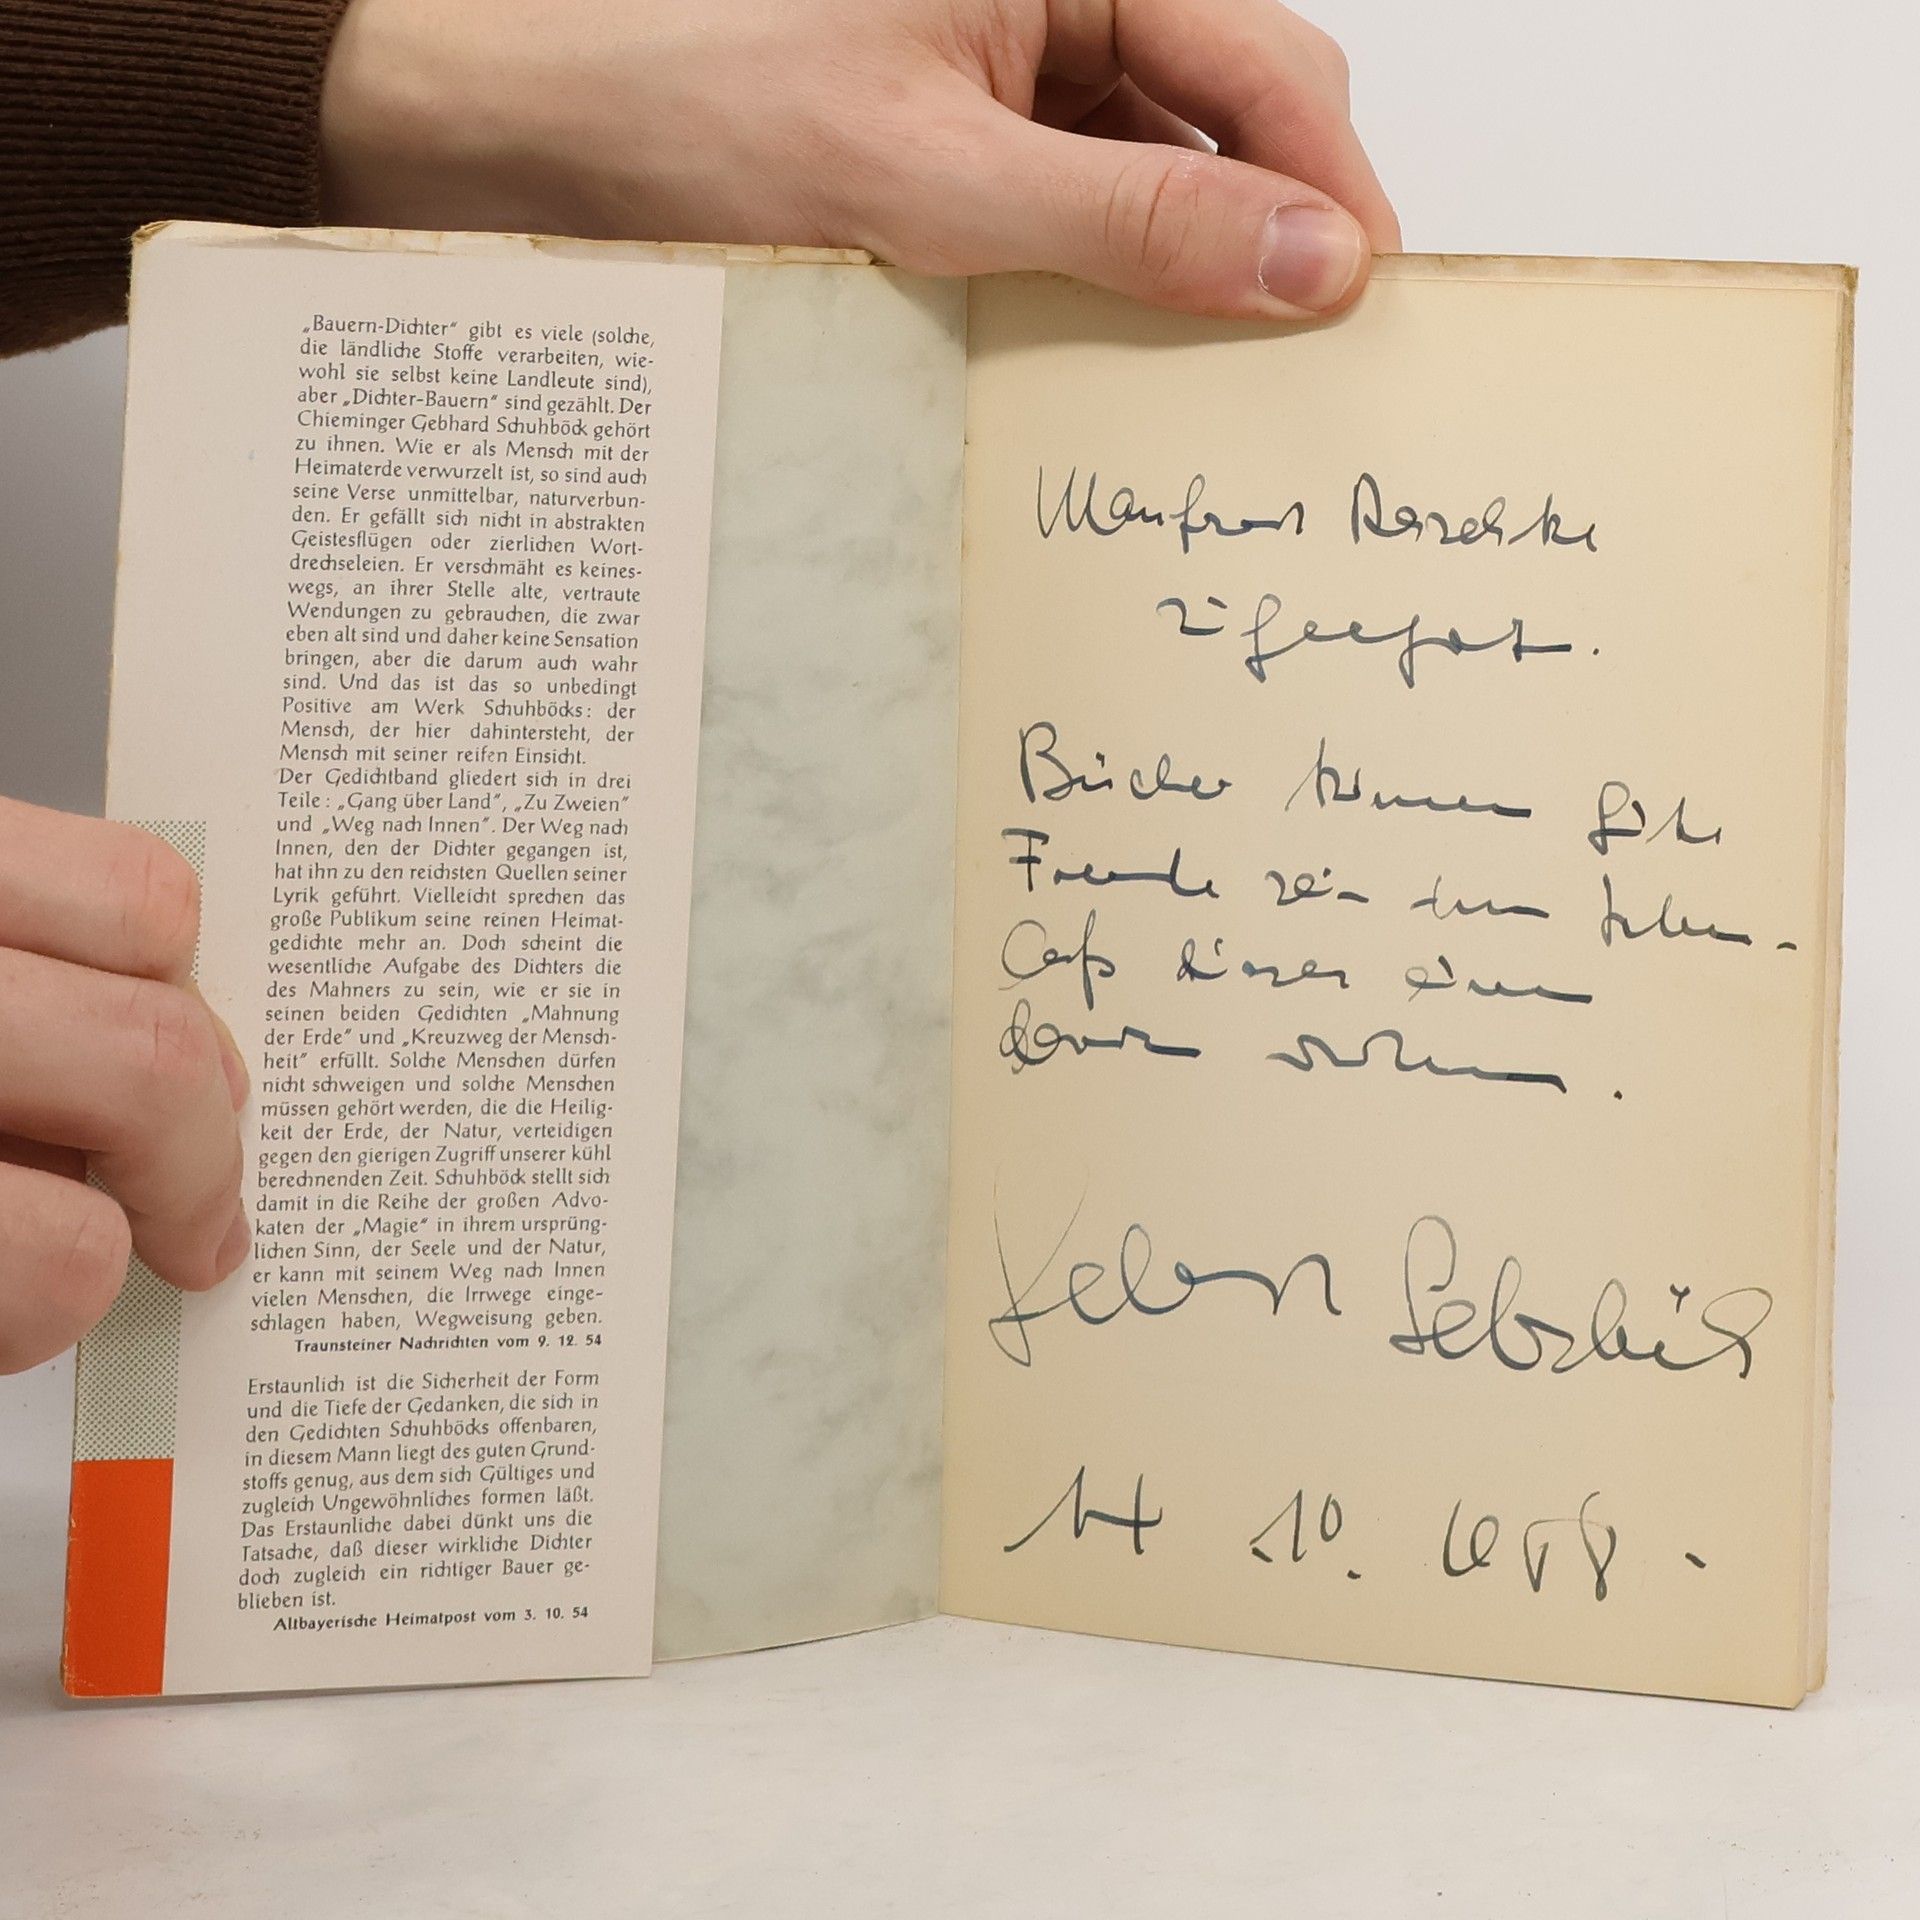 „Bauern-Dichter“ gibt es viele (solche,
die ländliche Stoffe verarbeiten, wie-
wohl sie selbst keine Landleute sind),
aber „Dichter-Bauern“ sind gezählt. Der
Chieminger Gebhard Schuhböck gehört
zu ihnen. Wie er als Mensch mit der
Heimaterde verwurzelt ist, so sind auch
seine Verse unmittelbar, naturverbun-
den. Er gefällt sich nicht in abstrakten
Geistesflügen oder zierlichen Wort-
drechseleien. Er verschmäht es keines-
wegs, an ihrer Stelle alte, vertraute
Wendungen zu gebrauchen, die zwar
eben alt sind und daher keine Sensation
bringen, aber die darum auch wahr
sind. Und das ist das so unbedingt
Positive am Werk Schuhböcks: der
Mensch, der hier dahintersteht, der
Mensch mit seiner reifen Einsicht.
Der Gedichtband gliedert sich in drei
Teile: „Gang über Land“, „Zu Zweien“
und „Weg nach Innen“. Der Weg nach
Innen, den der Dichter gegangen ist,
hat ihn zu den reichsten Quellen seiner
Lyrik geführt. Vielleicht sprechen das
große Publikum seine reinen Heimat-
gedichte mehr an. Doch scheint die
wesentliche Aufgabe des Dichters die
des Mahners zu sein, wie er sie in
seinen beiden Gedichten „Mahnung
der Erde“ und „Kreuzweg der Mensch-
heit“ erfüllt. Solche Menschen dürfen
nicht schweigen und solche Menschen
müssen gehört werden, die die Heilig-
keit der Erde, der Natur, verteidigen
gegen den gierigen Zugriff unserer kühl
berechnenden Zeit. Schuhböck stellt sich
damit in die Reihe der großen Advo-
katen der „Magie“ in ihrem ursprüng-
lichen Sinn, der Seele und der Natur,
er kann mit seinem Weg nach Innen
vielen Menschen, die Irrwege einge-
schlagen haben, Wegweisung geben.
Traunsteiner Nachrichten vom 9. 12. 54
Erstaunlich ist die Sicherheit der Form
und die Tiefe der Gedanken, die sich in
den Gedichten Schuhböcks offenbaren,
in diesem Mann liegt des guten Grund-
stoffs genug, aus dem sich Gültiges und
zugleich Ungewöhnliches formen läßt.
Das Erstaunliche dabei dünkt uns die
Tatsache, daß dieser wirkliche Dichter
doch zugleich ein richtiger Bauer ge-
blieben ist.
Altbayerische Heimatpost vom 3. 10. 54
Manfred
zugeeignet.
Bücher können gute
Freunde sein dem Leben -
Laß dieses eines
davon